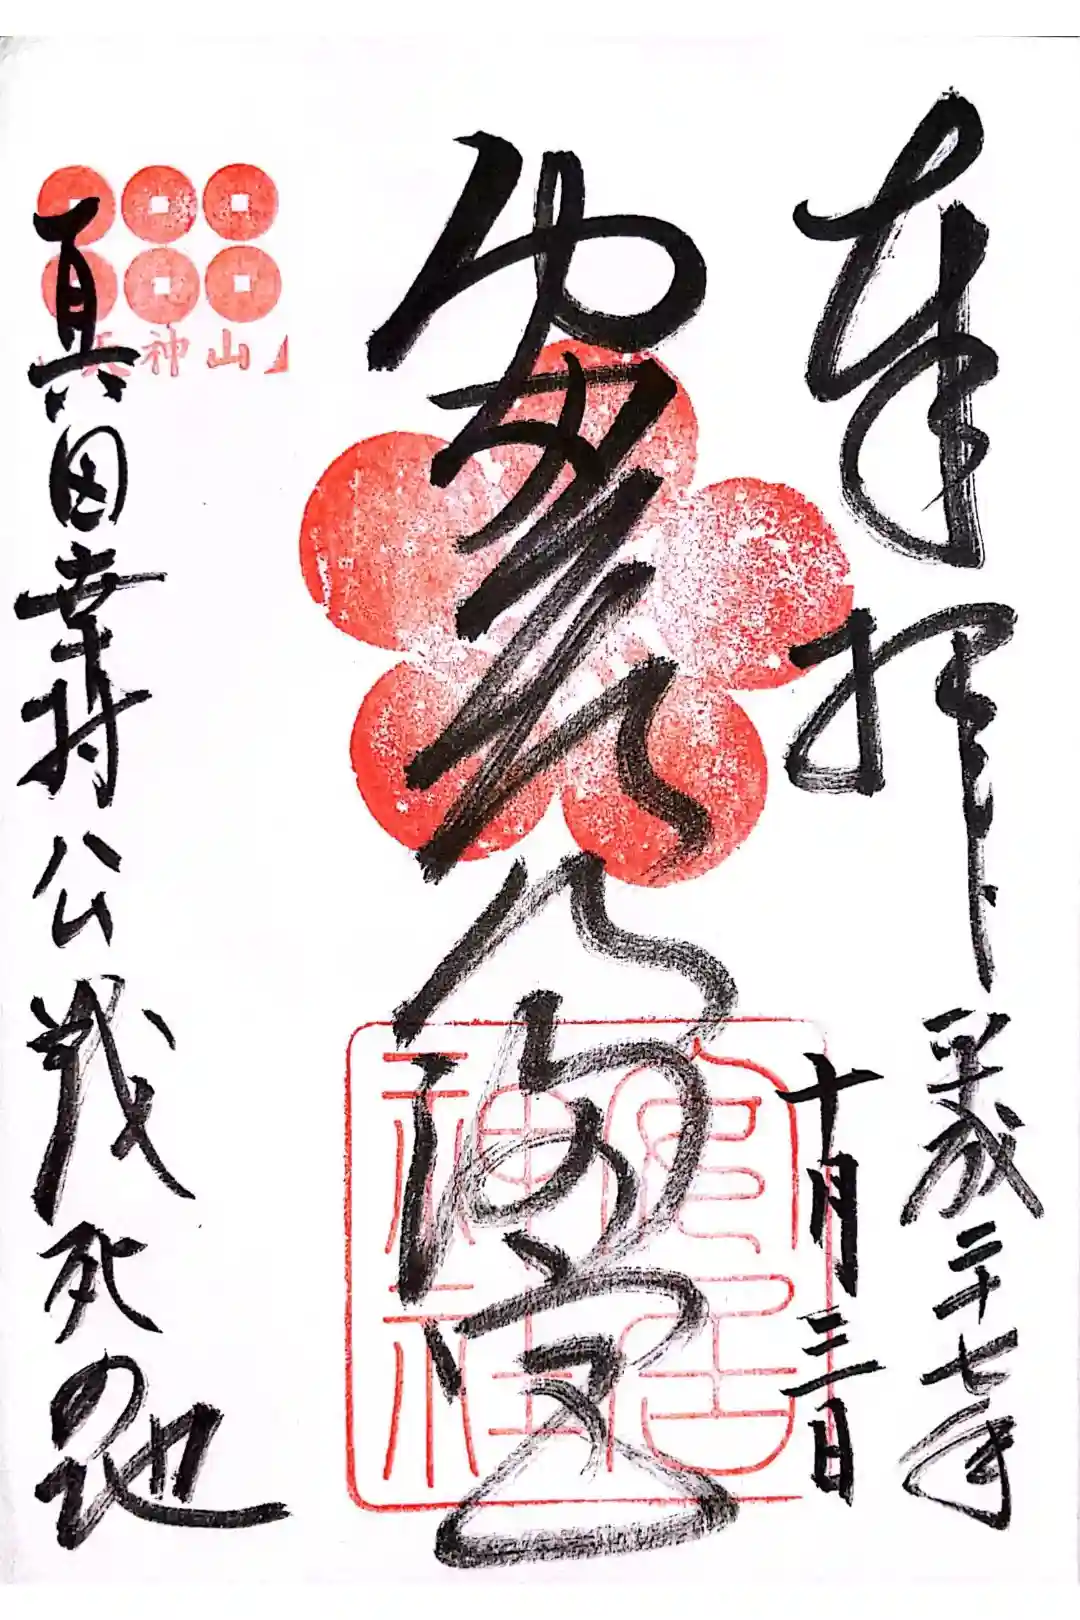 奉拝
平成二十七年
十月三日
安居天満宮
安居
神社
真田幸村公戦死の地
天神山